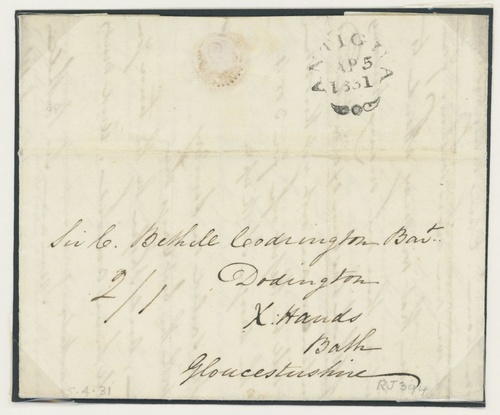 ANTIGUA
AP 5
1831
Sir C. Bethell Codrington Bart.
Dodington
2/1
X. Hands
Bath
Gloucestershire
5.4.31
RJ344